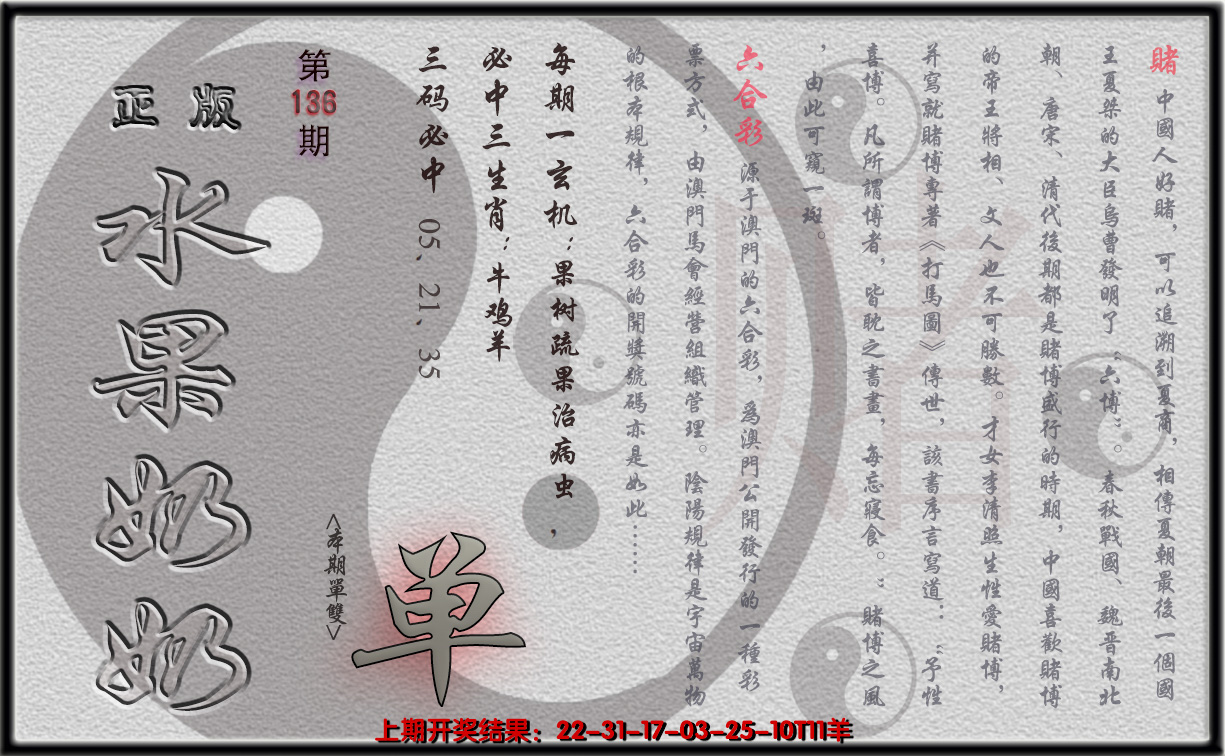 賭 中國人好賭，可以追溯到夏商，相傳夏朝最後一個國
王夏桀的大臣烏曹發明了“六博”。春秋戰國、魏晋南北
朝、唐宋、清代後期都是賭博盛行的時期，中國喜歡賭博
的帝王將相、文人也不可勝數。才女李清照生性愛賭博，
并寫就賭博專著《打馬圖》傳世，該書序言寫道：“予性
喜博。凡所謂博者，皆耽之書畫，每忘寢食。”賭博之風
，由此可窺一斑。
六合彩 源于澳門的六合彩，爲澳門公開發行的一種彩
票方式，由澳門馬會經營組織管理。陰陽規律是宇宙萬物
的根本規律，六合彩的開獎號碼亦是如此……
賭
每期一玄机：果树疏果治病虫，
必中三生肖：牛鸡羊
三码必中 05、21、35
第
136
期
<本期單雙>
单
正版
水果奶奶
上期开奖结果：22-31-17-03-25-10T11羊